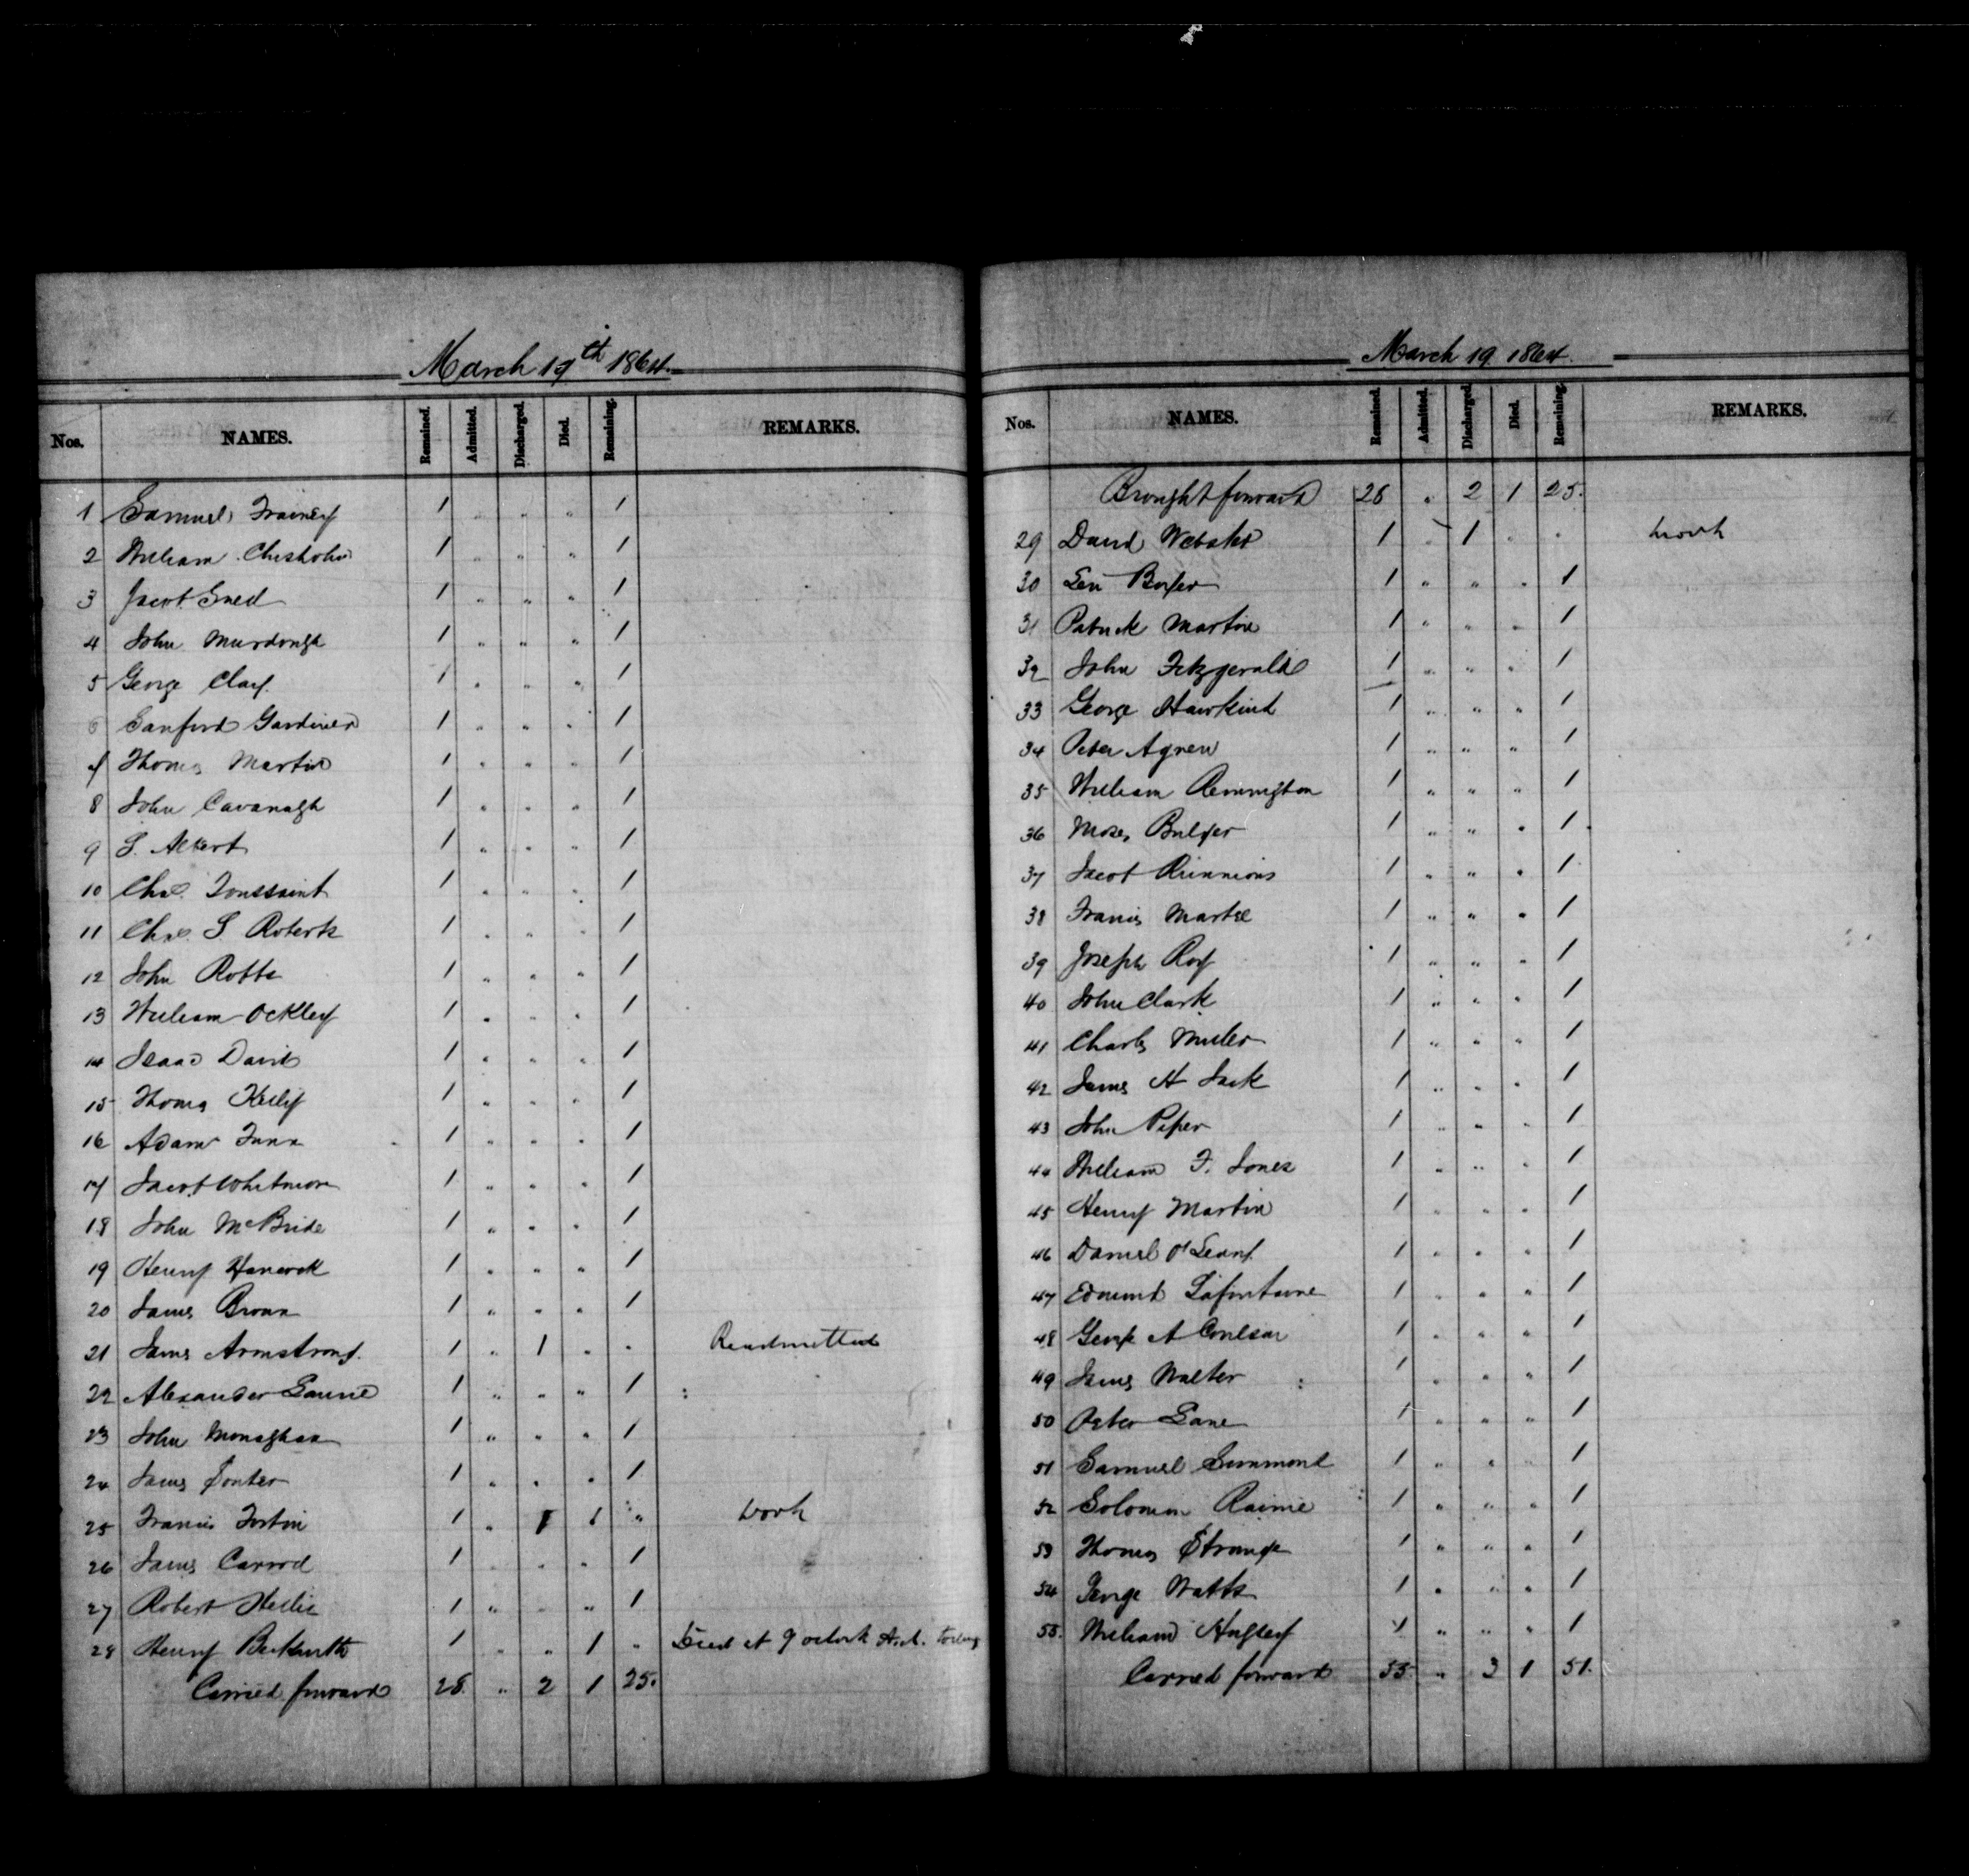 March 19th 1864.
Nos. NAMES. Remained. Admitted. Discharged. Died. Remaining. REMARKS.
1 Samuel Trainey 1 " " " 1
2 William Chisholm 1 " " " 1
3 Jacob Sned 1 " " " 1
4 John Murdough 1 " " " 1
5 George Clay. 1 " " " 1
6 Sanford Gardiner 1 " " " 1
7 Thomas Martin 1 " " " 1
8 John Cavanagh 1 " " " 1
9 S. Albert 1 " " " 1
10 Chas. Toussaint 1 " " " 1
11 Chas. S Roberts 1 " " " 1
12 John Potts 1 " " " 1
13 William Ockley 1 " " " 1
14 Isaac Davis 1 " " " 1
15 Thomas Kelly 1 " " " 1
16 Adam 1 " " " 1
17 Jacob Whitmore 1 " " " 1
18 John McBride 1 " " " 1
19 Henry Hancock 1 " " " 1
20 James Brown 1 " " " 1
21 James Armstrong. 1 " 1 " " Readmitted
22 Alexander 1 " " " 1
23 John Monaghan 1 " " " 1
24 James 1 " " " 1
25 Francis Fortin 1 " 1 1 " Work
26 James Carrol 1 " " " 1
27 Robert Hellis 1 " " " 1
28 Henry Beckwith 1 " " 1 " Died at 9 oclock A.M. today
Carried forward 28. " 2 1 25.
March 19 1864.
Nos. NAMES. Remained. Admitted. Discharged. Died. Remaining. REMARKS.
Brought forward 28 " 2 1 25.
29 David Webster 1 " 1 " " Work
30 Levi 1 " " " 1
31 Patrick Martin 1 " " " 1
32 John Fitzgerald 1 " " " 1
33 George Hawkins 1 " " " 1
34 Peter Agnew 1 " " " 1
35 William Remington 1 " " " 1
36 Moses Bulger 1 " " " 1
37 Jacob Runnions 1 " " " 1
38 Francis Martel 1 " " " 1
39 Joseph Roy 1 " " " 1
40 John Clark 1 " " " 1
41 Charles Miller 1 " " " 1
42 James H Jack 1 " " " 1
43 John Piper 1 " " " 1
44 William F. Jones 1 " " " 1
45 Henry Martin 1 " " " 1
46 Daniel O'Leary. 1 " " " 1
47 Edmund Lafontaine 1 " " " 1
48 George A Coulson 1 " " " 1
49 James Walter 1 " " " 1
50 Peter Lane 1 " " " 1
51 Samuel Simmons 1 " " " 1
52 Solomon Raimie 1 " " " 1
53 Thomas Strange 1 " " " 1
54 George Watts 1 " " " 1
55. William Hughey 1 " " " 1
Carried forward 55 " 3 1 51.